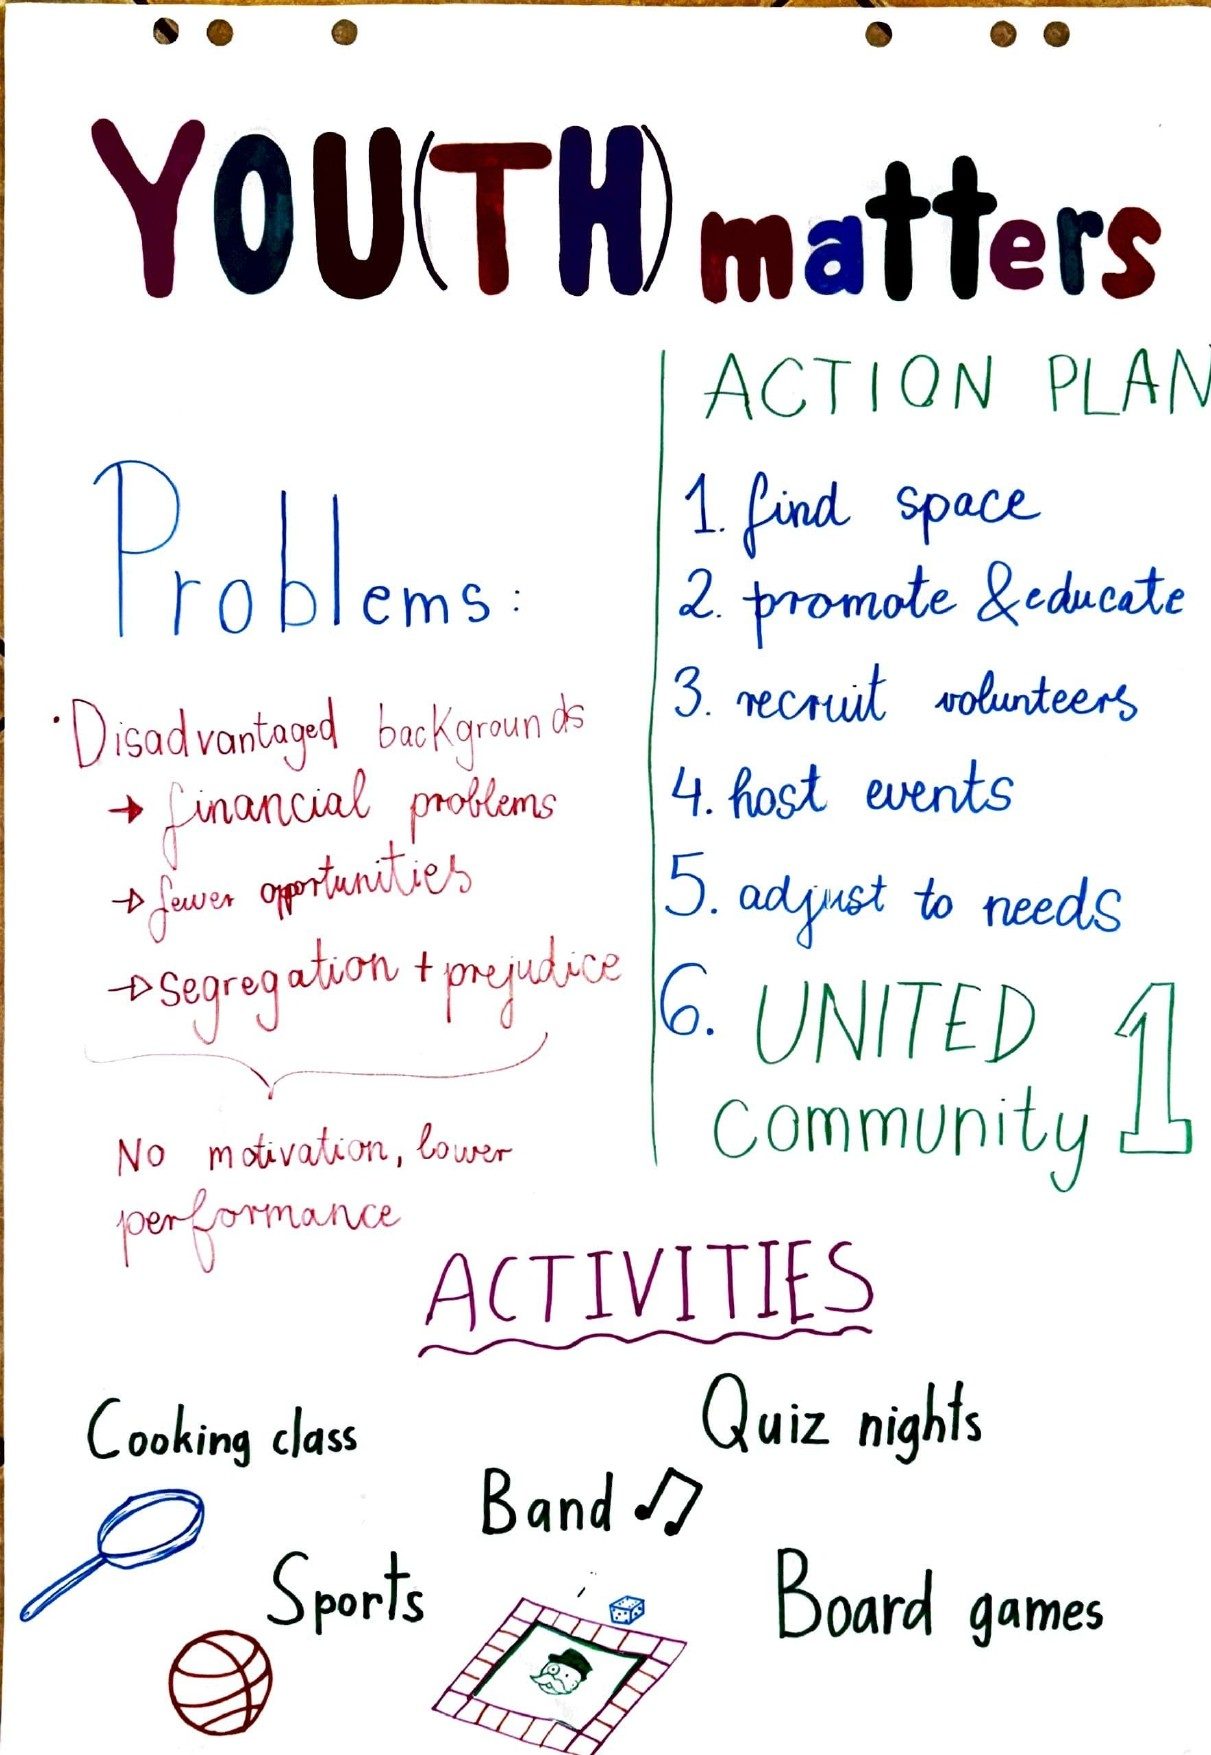 YOU(TH) matters
Problems:
· Disadvantaged backgrounds
→ financial problems
→ fewer opportunities
→ segregation + prejudice
No motivation, lower
performance
ACTION PLAN
1. find space
2. promote & educate
3. recruit volunteers
4. host events
5. adjust to needs
6. UNITED 1
community
ACTIVITIES
Cooking class
Quiz nights
Band
Sports
Board games